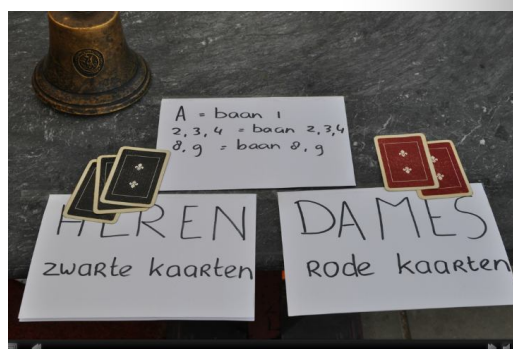 A = baan 1
2, 3, 4 = baan 2,3,4
8, 9 = baan 8, 9
HEREN
zwarte kaarten
DAMES
RODE kaarten